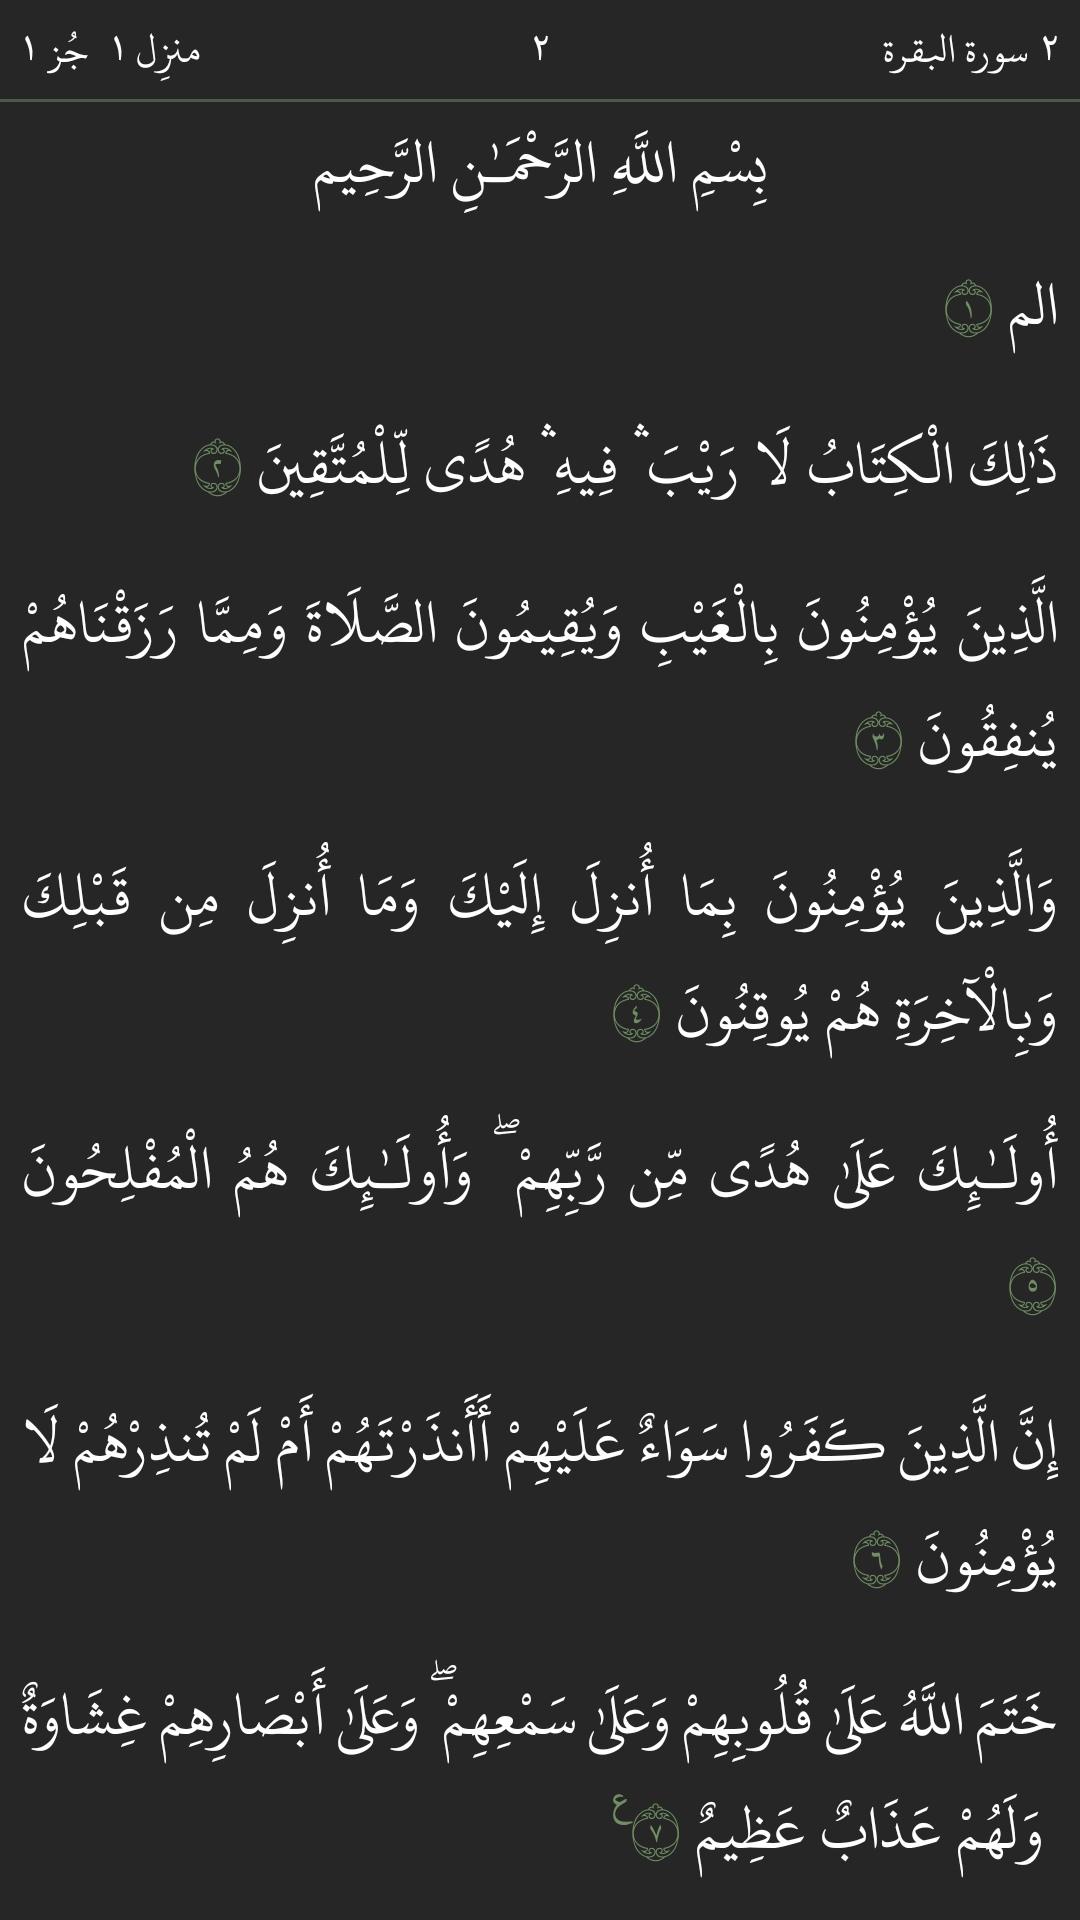 ٢ سورة البقرة ٢ منزِل ١ جُز ١
بِسْمِ اللَّهِ الرَّحْمَـٰنِ الرَّحِيم
الم ١
ذَٰلِكَ الْكِتَابُ لَا رَيْبَ ۛ فِيهِ ۛ هُدًى لِّلْمُتَّقِينَ ٢
الَّذِينَ يُؤْمِنُونَ بِالْغَيْبِ وَيُقِيمُونَ الصَّلَاةَ وَمِمَّا رَزَقْنَاهُمْ
يُنفِقُونَ ٣
وَالَّذِينَ يُؤْمِنُونَ بِمَا أُنزِلَ إِلَيْكَ وَمَا أُنزِلَ مِن قَبْلِكَ
وَبِالْآخِرَةِ هُمْ يُوقِنُونَ ٤
أُولَـٰئِكَ عَلَىٰ هُدًى مِّن رَّبِّهِمْ ۖ وَأُولَـٰئِكَ هُمُ الْمُفْلِحُونَ
٥
إِنَّ الَّذِينَ كَفَرُوا سَوَاءٌ عَلَيْهِمْ أَأَنذَرْتَهُمْ أَمْ لَمْ تُنذِرْهُمْ لَا
يُؤْمِنُونَ ٦
خَتَمَ اللَّهُ عَلَىٰ قُلُوبِهِمْ وَعَلَىٰ سَمْعِهِمْ ۖ وَعَلَىٰ أَبْصَارِهِمْ غِشَاوَةٌ
وَلَهُمْ عَذَابٌ عَظِيمٌ ٧ ع